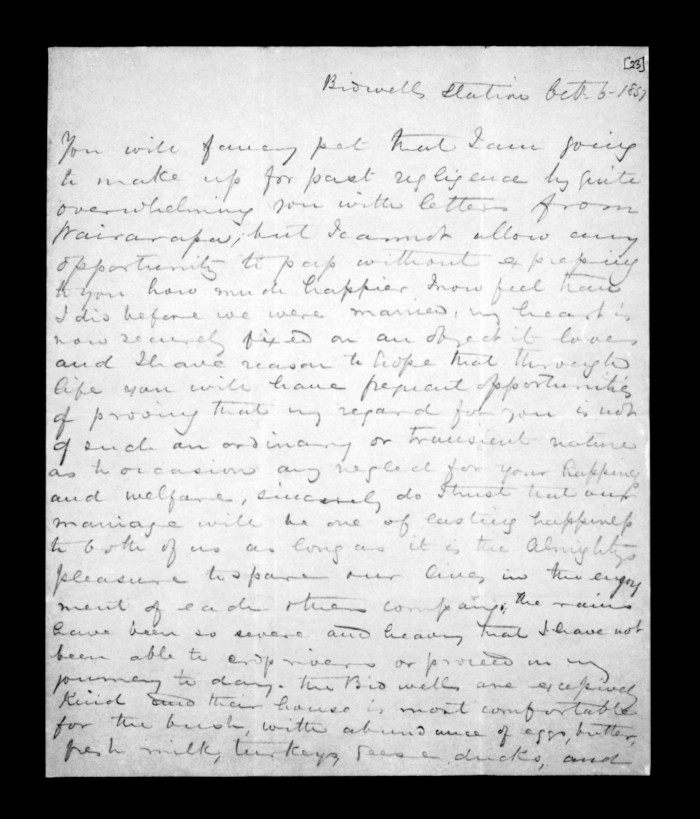 [23]
Bidwells Station Oct. 6 - 1857
You will fancy pet that I am going
to make up for past negligence by quite
overwhelming you with letters from
Wairarapa; but I cannot allow any
opportunity to pass without expressing
to you how much happier I now feel than
I did before we were married, my heart is
now securely fixed on an object it loves
and I have reason to hope that through
life you will have frequent opportunities
of proving that my regard for you is not
of such an ordinary or transient nature
as to occasion any neglect for your happiness
and welfare, sincerely do I trust that our
marriage will be one of lasting happiness
to both of us as long as it is the Almightys
pleasure to spare our lives in the enjoy
ment of each others company; the rains
have been so severe and heavy that I have not
been able to cross rivers or proceed in my
journey to day. The Bidwells are excessively
kind and their house is most comfortable
for the bush, with abundance of eggs, butter,
fresh milk, turkeys, geese, ducks, and